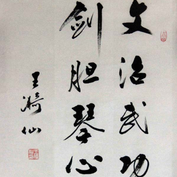 文治武功
剑胆琴心
王绮仙